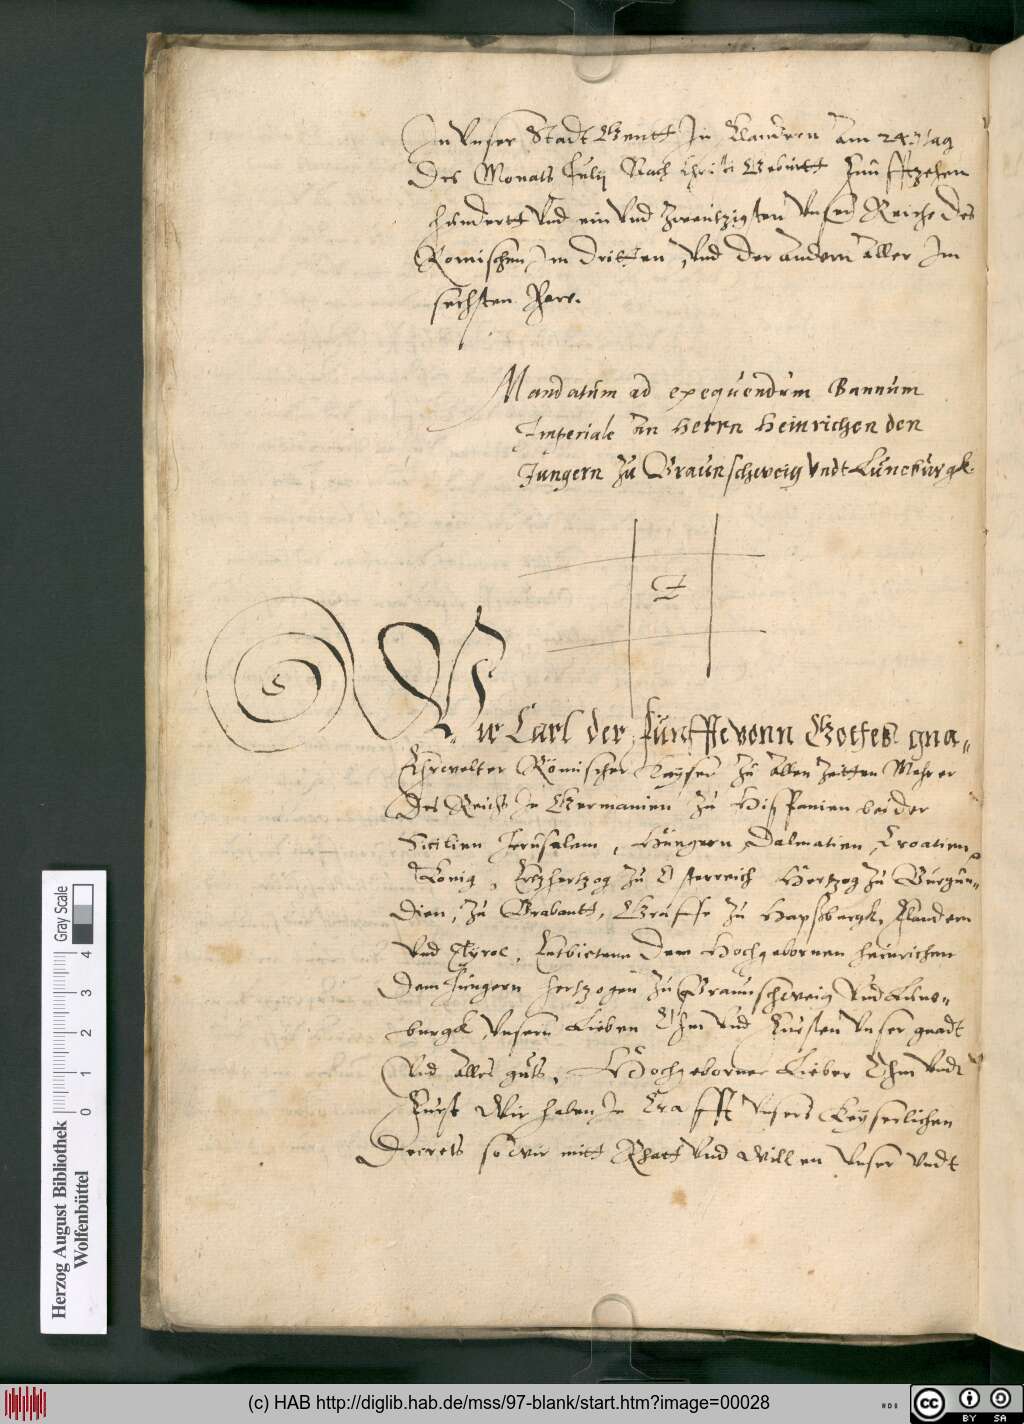 In Unser Stadt Gentt In Flandren am 24 Tag
Des Monats Julij Nach Christi Geburtt Funfftzehen
hundertt Und ein und zwentzigsten Unser Reiche des
Romischen Im dritten, Und der andern aller Im
sechsten Jare.
Mandatum ad exequendum Bannum
Imperiale an Herrn Heinrichen den
Jungern zu Braunschweig Undt Lüneburgk.
Wir Carl der funffte vonn Gottes gna-
Erwelter Römischer Kayser zu allen Zeitten Mehrer
Des Reichs In Germanien zu Hispanien beider
Sicilien Jerusalem, Hungern Dalmatien, Croatien
König, Ertzhertzog zu Osterreich Hertzog zu Burgun-
dien, zu Brabantt, Graffe zu Hapsburgk, Flandern
Und Tyrol, Entbietenn Dem Hochgebornen Heinrichen
Dem Jungern Hertzogen zu Braunschweig Und Lune-
burgk Unsern Lieben Ohm Und Fursten Unser gnadt
Und alles guts, Hochgeborner Lieber Ohm Undt
Furst Wir haben In Crafft Unsers Keyserlichen
Decrets so wir mitt Rhatt Und Willen Unser Undt
Herzog August Bibliothek
Wolfenbüttel
Gray Scale
0 1 2 3 4
(c) HAB http://diglib.hab.de/mss/97-blank/start.htm?image=00028
cc BY SA